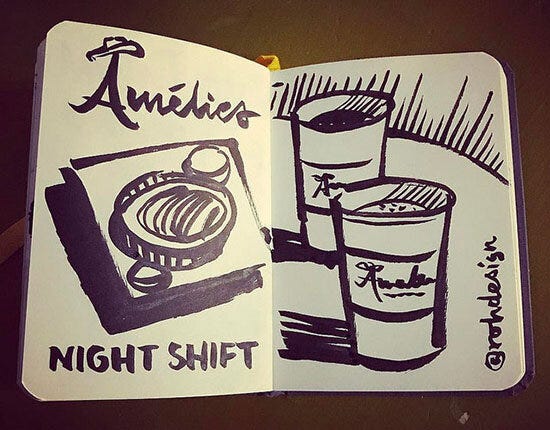 Amélies
NIGHT SHIFT
@rohdesign